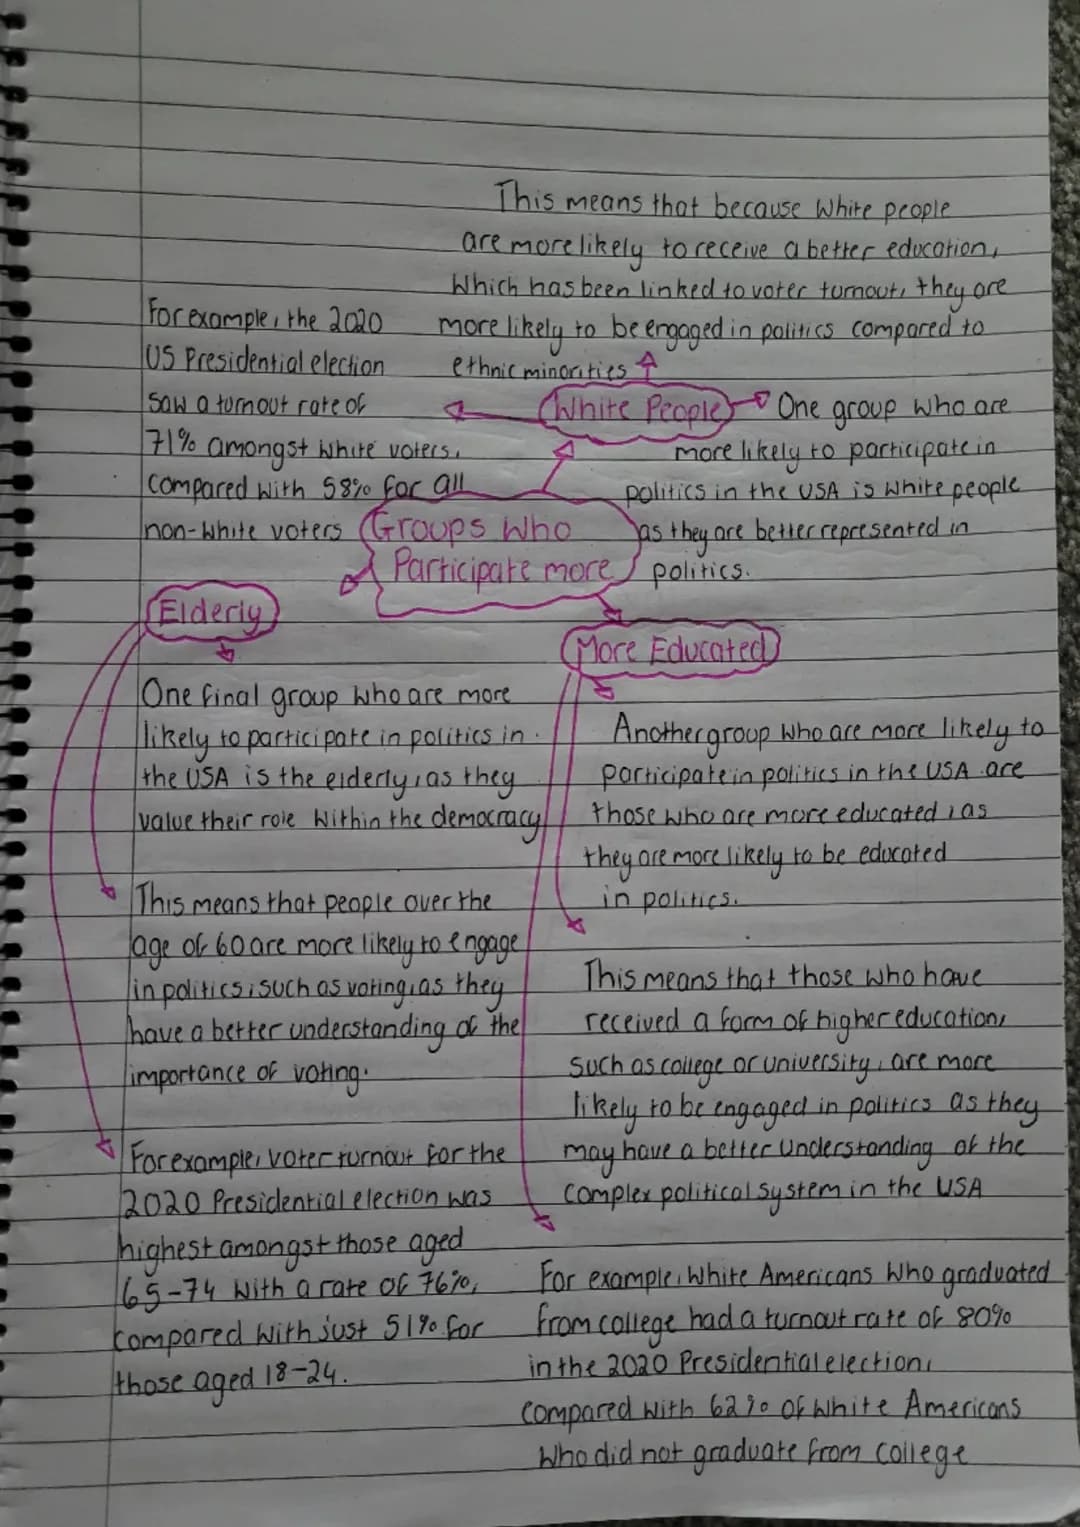 This means that because White people
are more likely to receive a better education,
Which has been linked to voter turnout, they are
more likely to be engaged in politics compared to
ethnic minorities
For example, the 2020
US Presidential election
Saw a turnout rate of
71% amongst White voters,
Compared with 58% for all
non-White voters
White People
One group who are
more likely to participate in
politics in the USA is White people
as they are better represented in
politics.
Groups Who
Participate more
Elderly
One final group who are more
likely to participate in politics in
the USA is the elderly, as they
value their role within the democracy
This means that people over the
age of 60 are more likely to engage
in politics, such as voting, as they
have a better understanding of the
importance of voting.
For example, voter turnout for the
2020 Presidential election was
highest amongst those aged
65-74 with a rate of 76%,
compared with just 51% for
those aged 18-24.
More Educated
Another group who are more likely to
participate in politics in the USA are
those who are more educated, as
they are more likely to be educated
in politics.
This means that those who have
received a form of higher education,
such as college or university, are more
likely to be engaged in politics as they
may have a better understanding of the
complex political system in the USA
For example, White Americans who graduated
from college had a turnout rate of 80%
in the 2020 Presidential election,
compared with 62% of White Americans
Who did not graduate from college